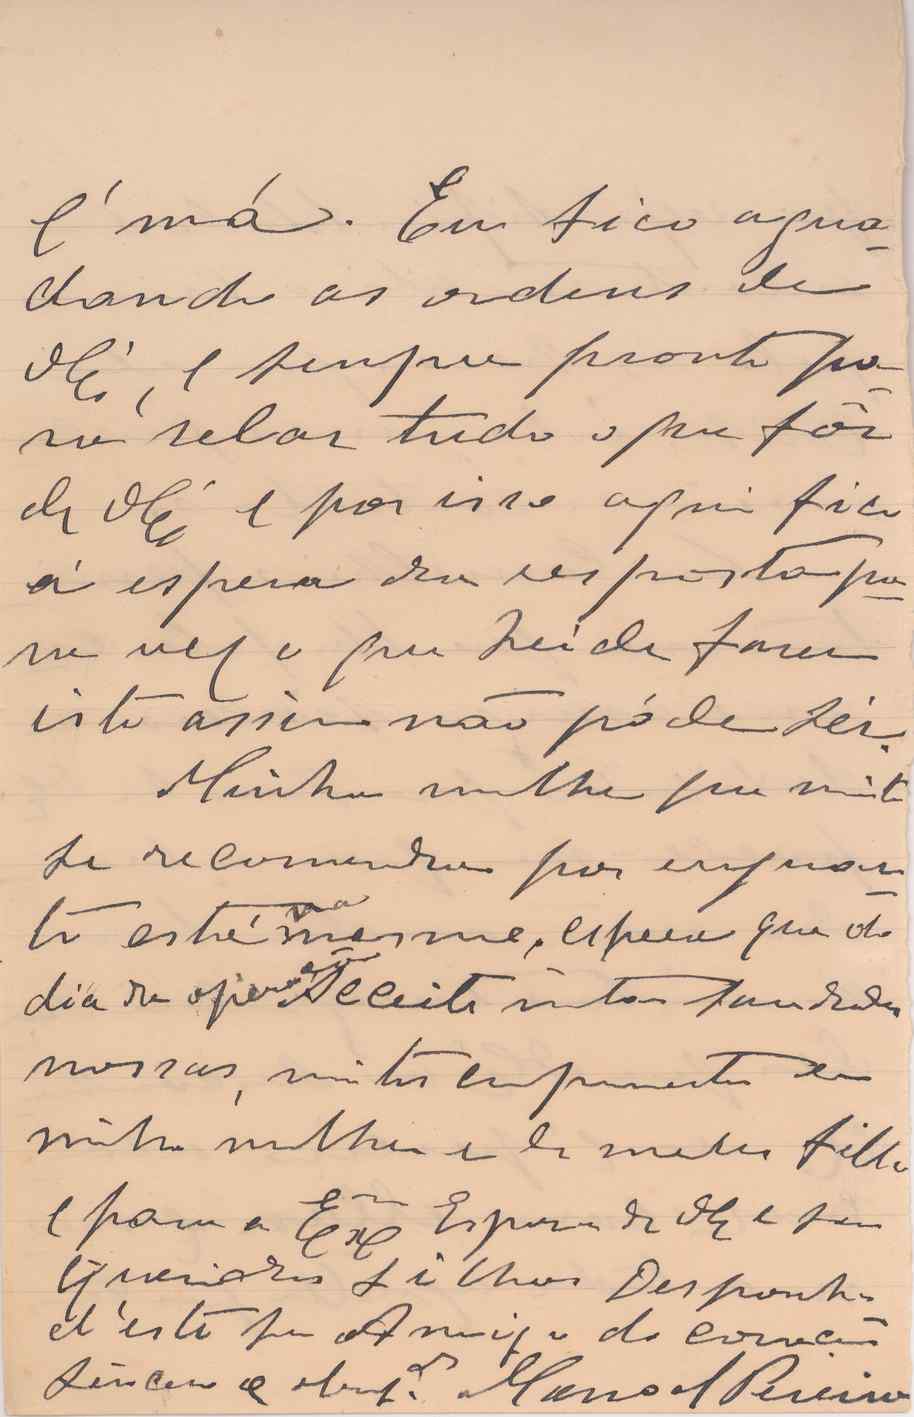 é má. Eu fico agua-
dando as ordens de
VExª, e sempre pronto pa-
ra selar tudo o que fôr
de VExª e por isso aqui fico
á espera da resposta pa-
ra ver o que hei de faser
isto assim não póde sêr.
Minha mulher que muito
se recomenda por enquan-
to está na mesma, espera que do
dia da operação Acceite muitas saudades
nossas, muitos cumprimentos de
minha mulher e de meu filho
e para a Exmª Esposa de VExª e seus
queridos filhos Desponha
d'este seu Amigo do coração
sincero e obrigdº Manoel Pereira